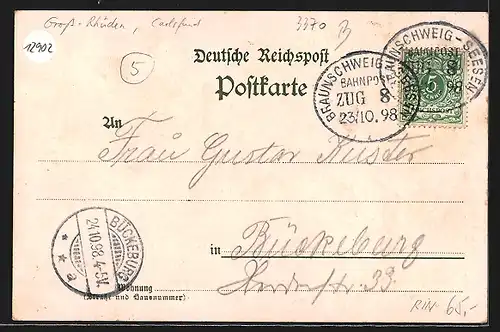 Groß-Rhüden, Carlsfund
3370 B
12902
5
Deutsche Reichspost
Postkarte
BRAUNSCHWEIG-SEESEN
BAHNPOST
ZUG 8
23/10.98
BRAUNSCHWEIG-SEESEN
BAHNPOST
8
98
5
An
Frau Gustav
in Bückeburg
33.
BÜCKEBURG
24.10.98.4-5N.
* * a
Wohnung
(Straße und Hausnummer)
65,-